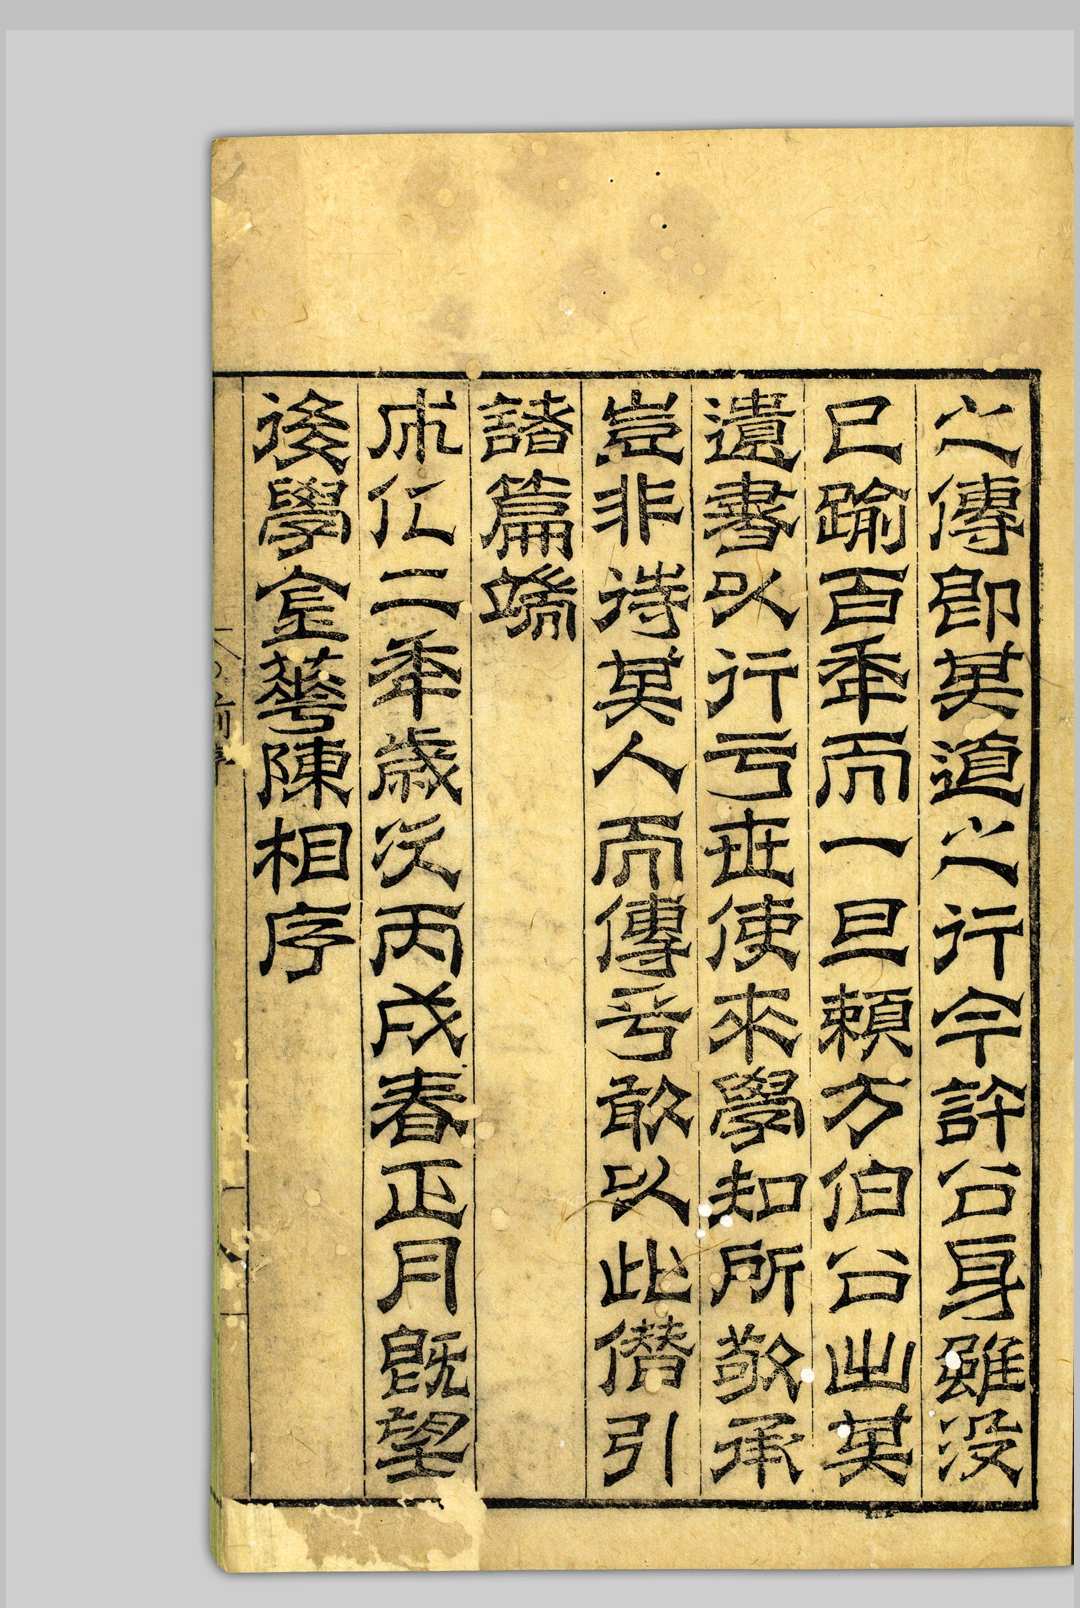 之傳即其道之行今許公身雖沒
已踰百年而一旦賴方伯公出其
遺書以行亏世使來學知所敬承
豈非待其人而傳乎敢以此僭引
諸篇端
成化二年歲次丙戌春正月既望
後學金華陳相序